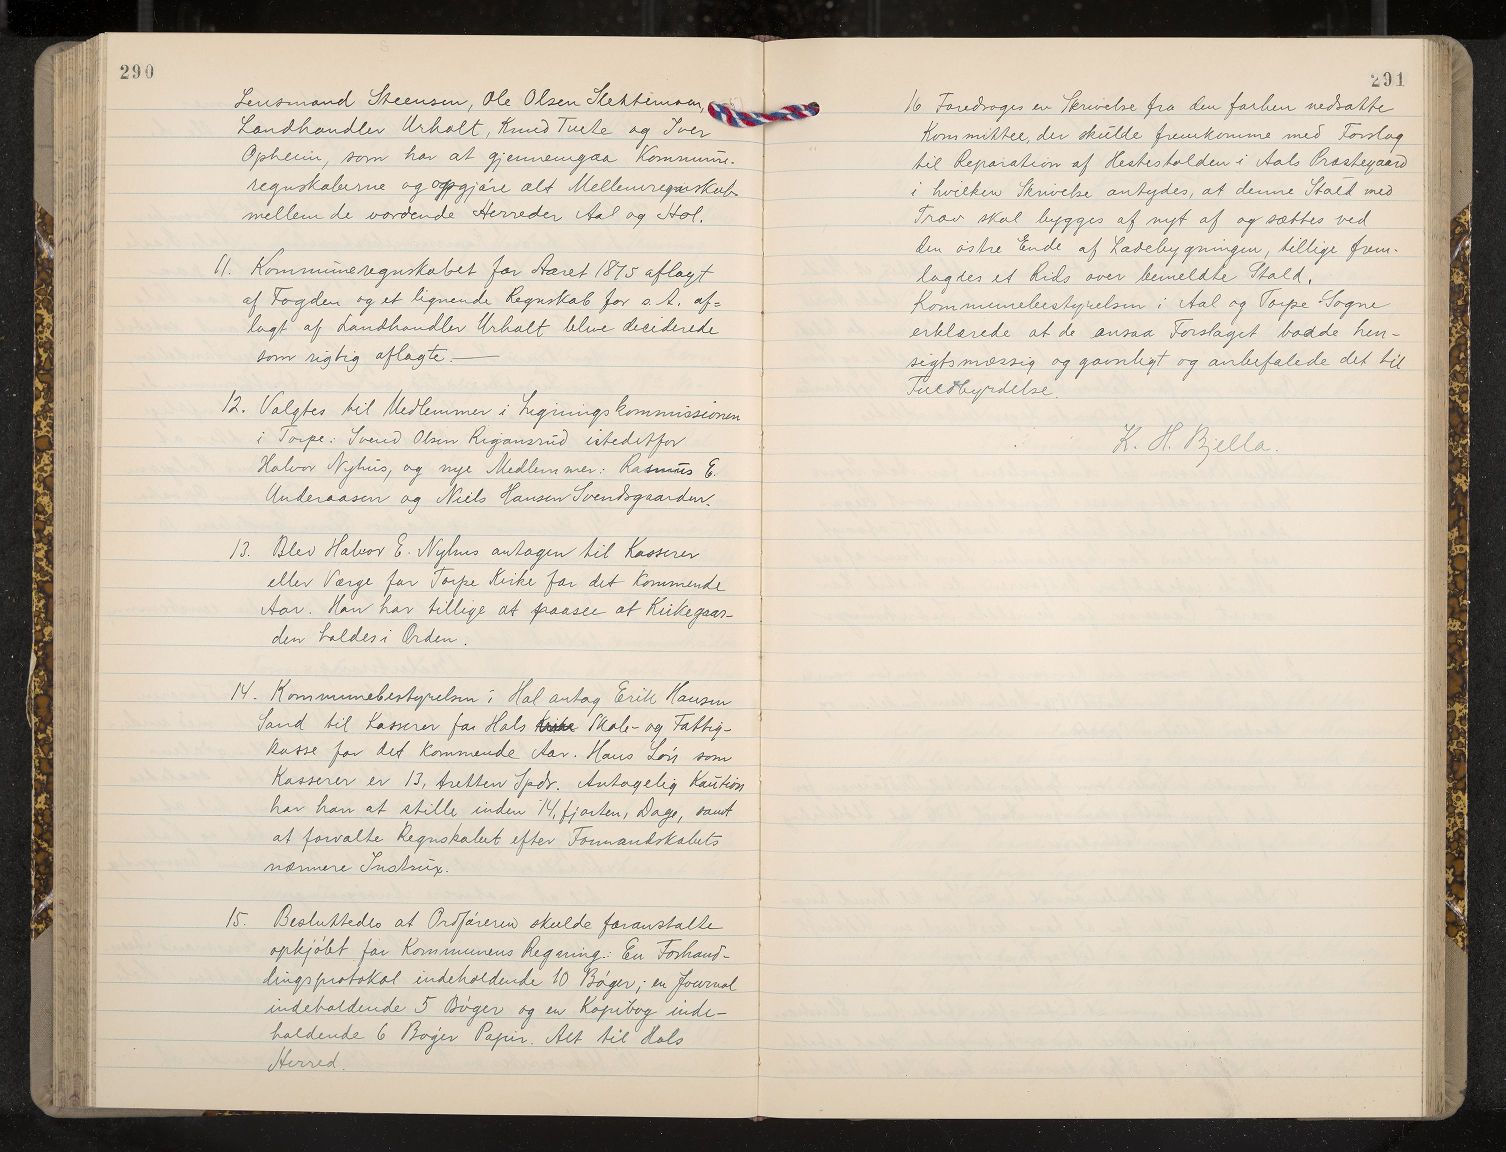 290
Lensmand Steensen, Ole Olsen Slettemoen,
Landhandler Urholt, Knud Tvete og Iver
Opheim, som har at gjennemgaa Kommune-
regnskaberne og opgjøre alt Mellemregnskab
mellem de vordende Herreder Aal og Hol.
11. Kommuneregnskabet for Aaret 1875 aflagt
af Fogden og et lignende Regnskab for s. A. af=
lagt af Landhandler Urholt blive deciderede
som rigtig aflagte.
12. Valgtes til Medlemmer i Ligningskommissionen
i Torpe: Svend Olsen Rigansrud istedetfor
Halvor Nyhus, og nye Medlemmer: Rasmus E.
Underaasen og Niels Hansen Svendsgaarden.
13. Blev Halvor E. Nyhus antagen til Kasserer
eller Værge for Torpe Kirke for det kommende
Aar. Han har tillige at paasee at Kirkegaar-
den holdes i Orden.
14. Kommunebestyrelsen i Hol antog Erik Hansen
Sand til Kasserer for Hols Kirke Skole- og Fattig-
kasse for det kommende Aar. Hans Løn som
Kasserer er 13, tretten Spdr. Antagelig Kaution
har han at stille inden 14, fjorten, Dage, samt
at forvalte Regnskabet efter Formandskabets
nærmere Instrux.
15. Besluttedes at Ordføreren skulde foranstalte
opkjøbt for Kommunens Regning: En Forhand-
lingsprotokol indeholdende 10 Bøger; en Journal
indeholdende 5 Bøger og en Kopibog inde-
holdende 6 Bøger Papir. Alt til Hols
Herred.
291
16 Foredroges en Skrivelse fra den forhen nedsatte
Kommittee, der skulde fremkomme med Forslag
til Reparation af Hestestalden i Aals Præstegaard
i hvilken Skrivelse antydes, at denne Stald med
Trav skal bygges af nyt af og sættes ved
den østre Ende af Ladebygningen, tillige frem-
lagdes et Rids over bemeldte Stald.
Kommunebestyrelsen i Aal og Torpe Sogne
erklærede at de ansaa Forslaget baade hen-
sigtsmæssig og gavnligt og anbefalede det til
Fuldbyrdelse.
K. H. Bjella.